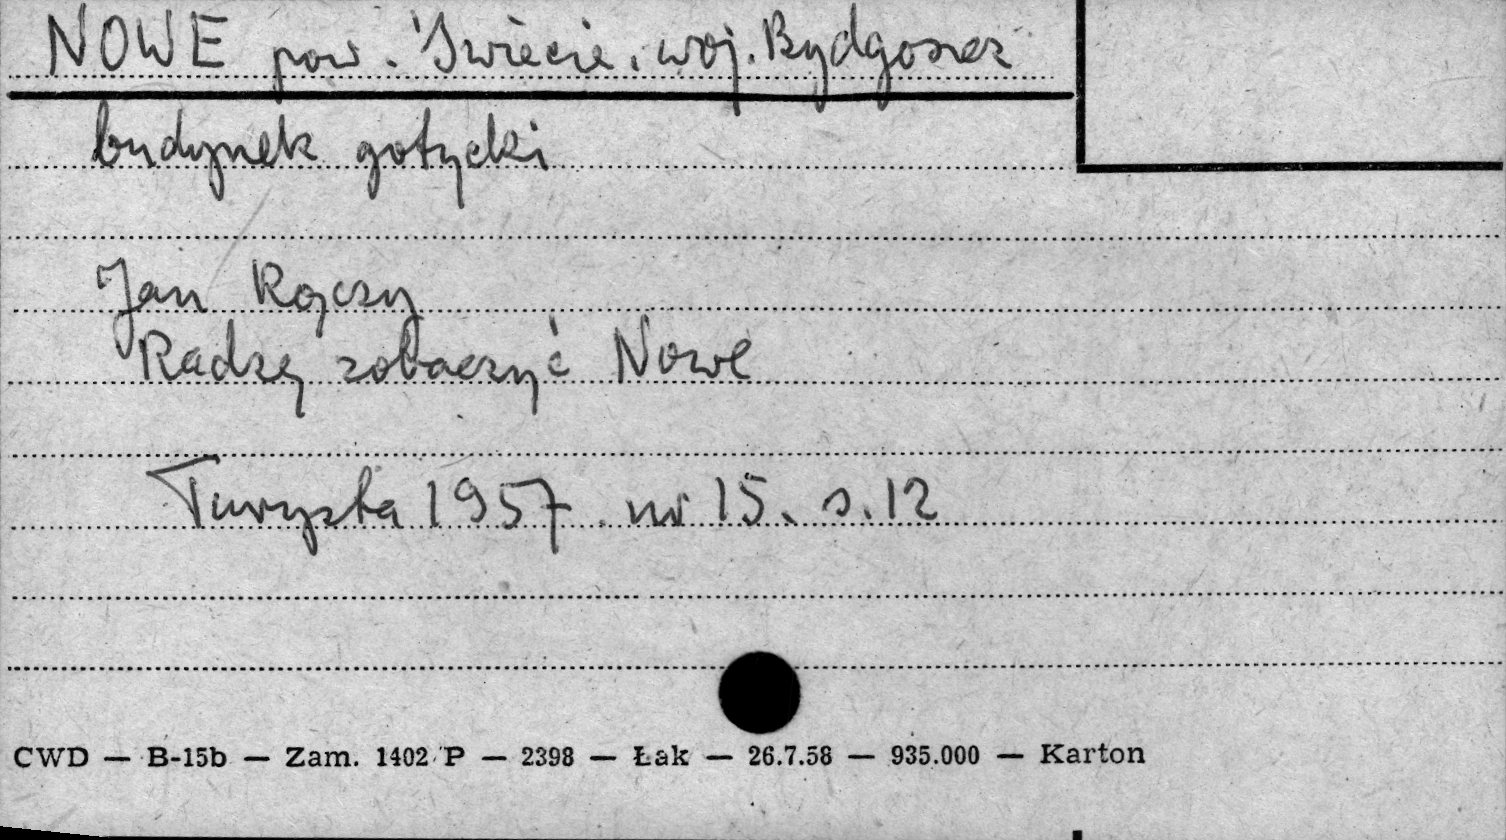 NOWE pow. Świecie. woj. Bydgoszcz
budynek gotycki
Jan Rączy
Radzę zobaczyć Nowe
Turysta 1957. nr 15. s. 12
CWD — B-15b — Zam. 1402 P — 2398 — Łak — 26.7.58 — 935.000 — Karton